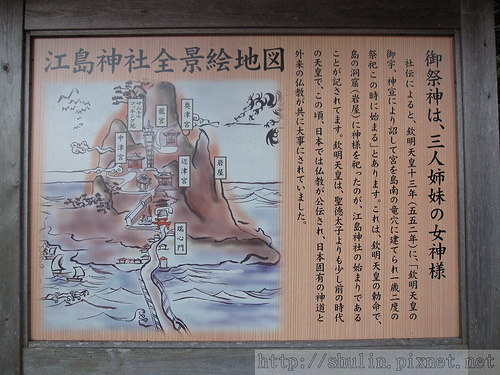 江島神社全景絵地図
御祭神は、三人姉妹の女神様
社伝によると、欽明天皇十三年（五五二年）に、「欽明天皇の
御宇、神宣により詔して宮を島南の竜穴に建てられ一歳二度の
祭祀この時に始まる」とあります。これは、欽明天皇の勅命で、
島の洞窟（岩屋）に神様を祀ったのが、江島神社の始まりである
ことが記されてます。欽明天皇は、聖徳太子よりも少し前の時代
の天皇で、この頃、日本では仏教が公伝され、日本固有の神道と
外来の仏教が共に大事にされていました。
奥津宮
龍宮
岩屋
中津宮
辺津宮
瑞心門
http://shulin.pixnet.net